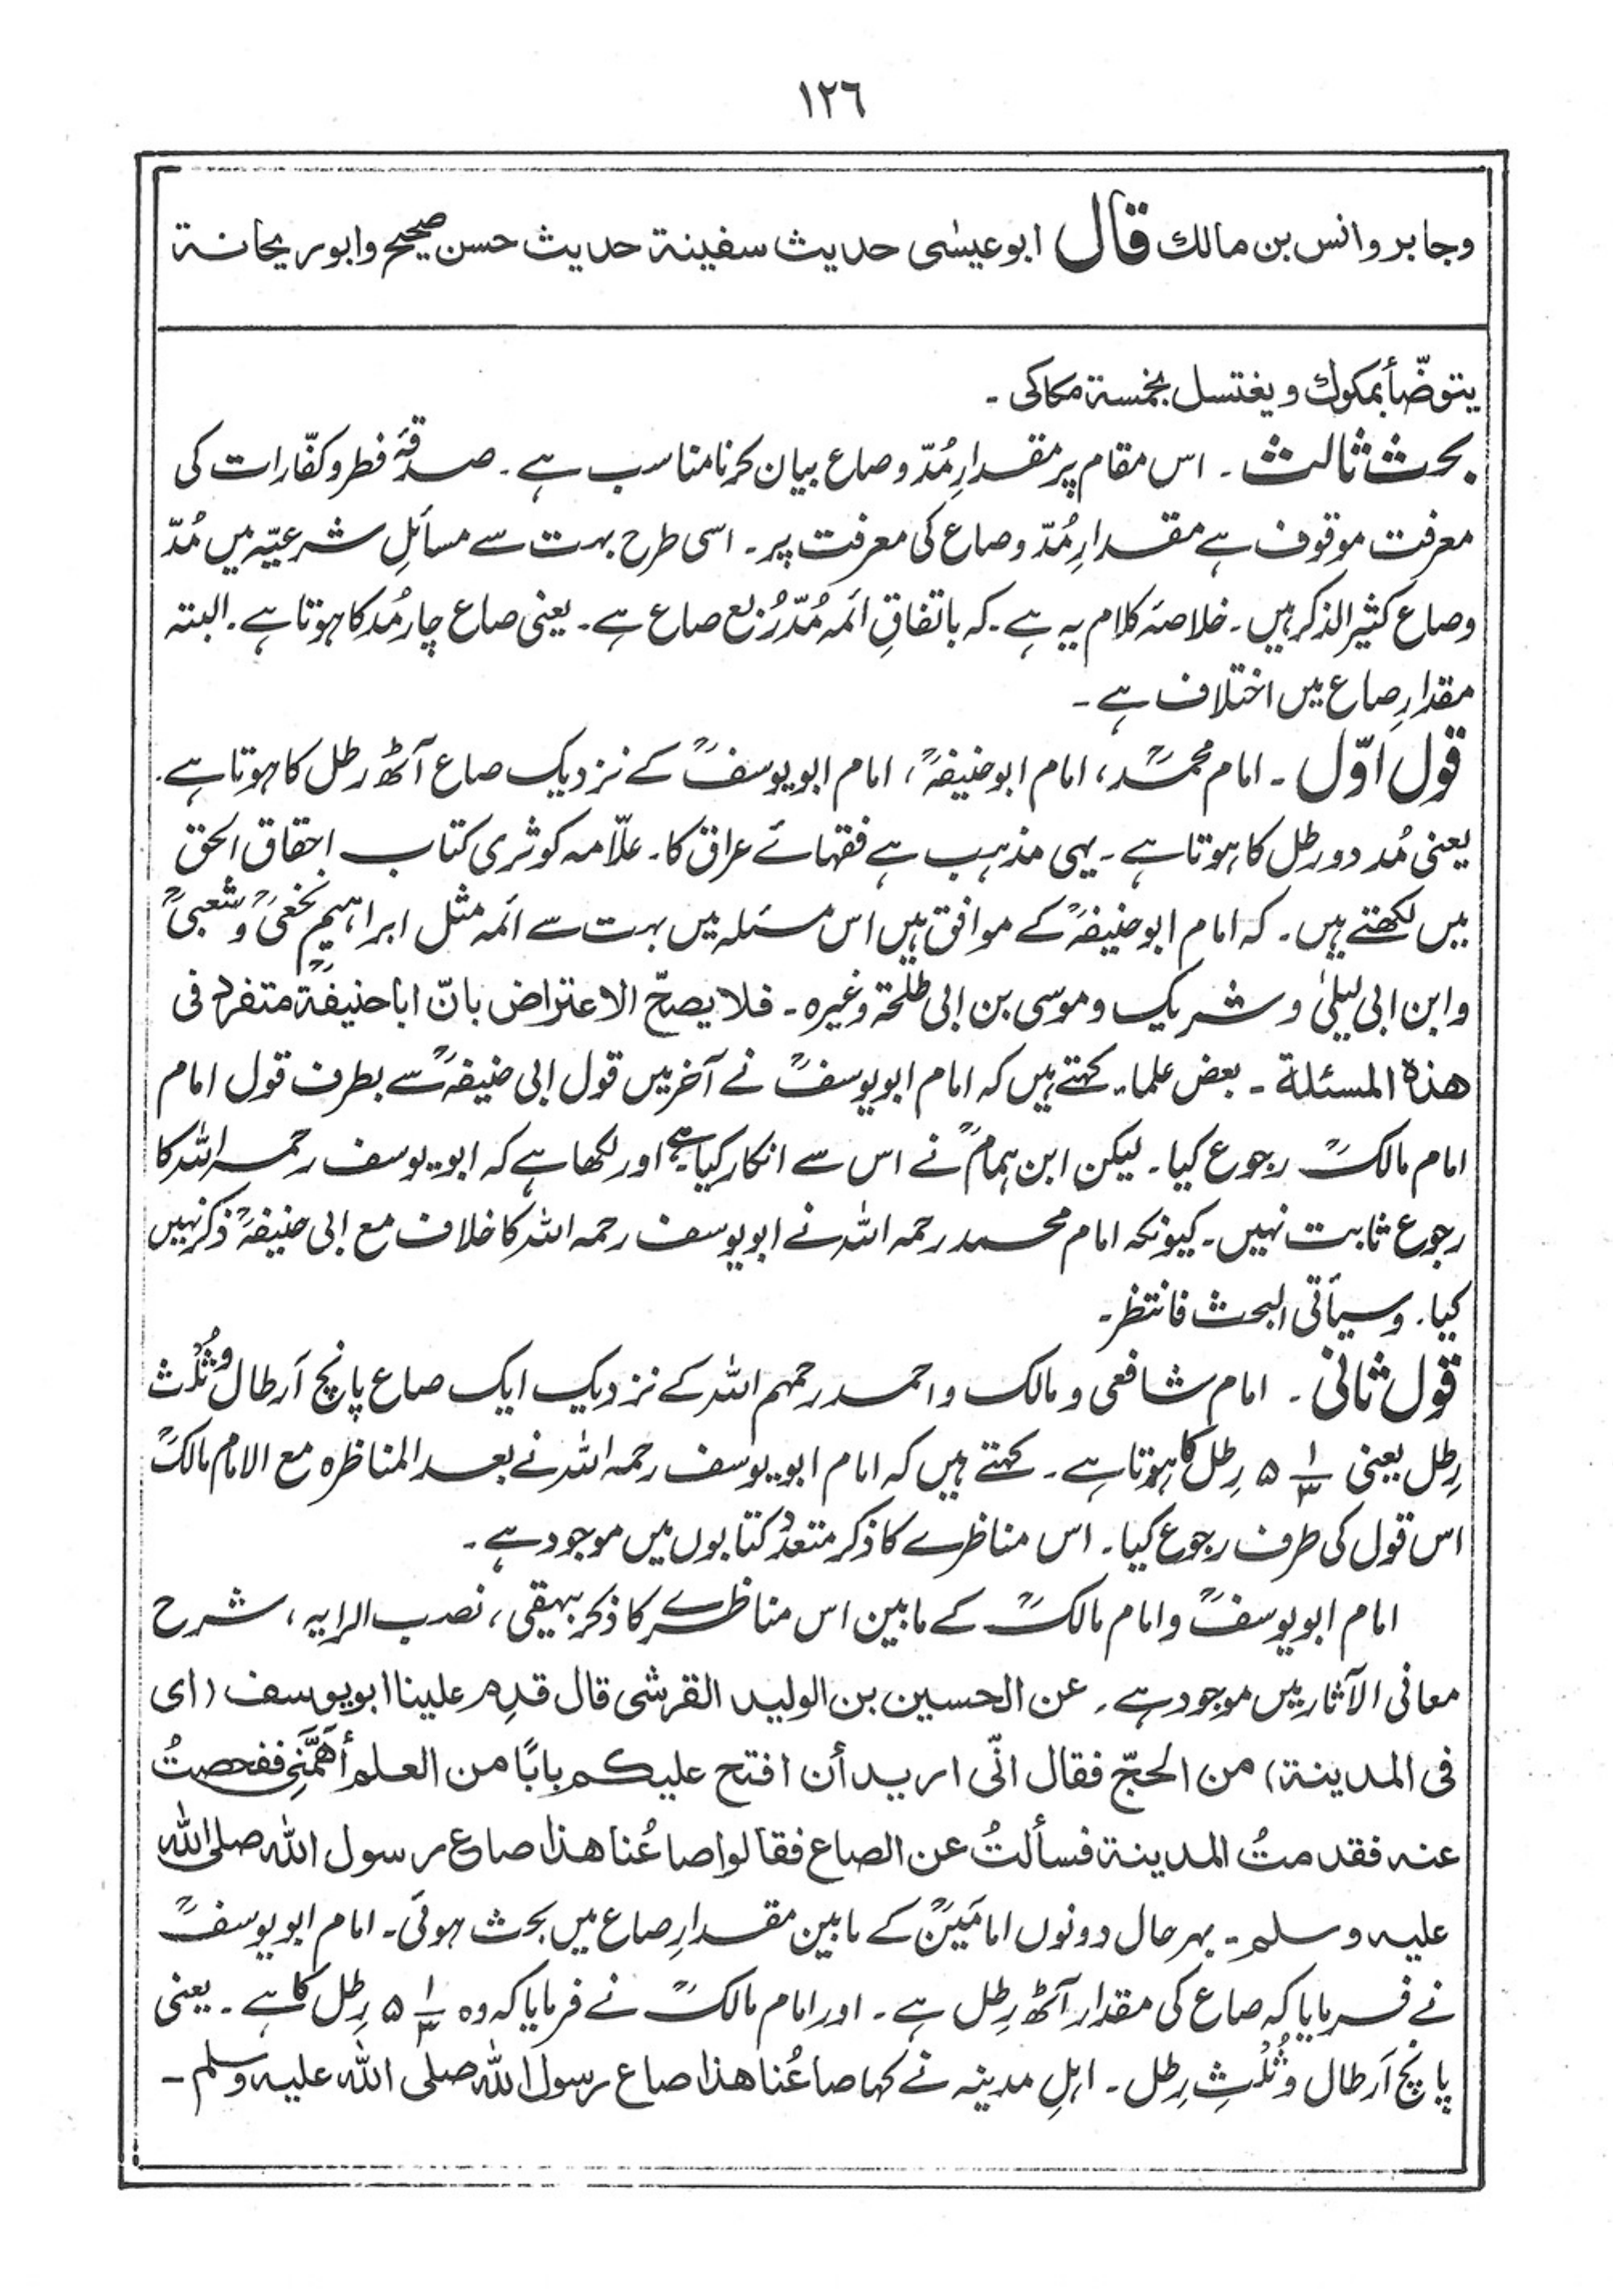 ١٢٦
وجابر وانس بن مالك قال ابوعیسٰی حدیث سفینة حدیث حسن صحیح وابوریحانة
یتوضّأ بمکوك ویغتسل بخمسة مکاکی ۔
بحث ثالث ۔ اس مقام پر مقدارِ مُدّ وصاع بیان کرنا مناسب ہے ۔ صدقۂ فطر وکفّارات کی
معرفت موقوف ہے مقدارِ مُدّ وصاع کی معرفت پر ۔ اسی طرح بہت سے مسائلِ شرعیّہ میں مُدّ
وصاع کثیر الذکر ہیں ۔ خلاصۂ کلام یہ ہے ۔ کہ باتفاقِ ائمہ مُدّ رُبع صاع ہے ۔ یعنی صاع چار مُد کا ہوتا ہے ۔ البتہ
مقدارِ صاع میں اختلاف ہے ۔
قول اوّل ۔ امام محمدؒ، امام ابوحنیفہؒ، امام ابویوسفؒ کے نزدیک صاع آٹھ رطل کا ہوتا ہے ۔
یعنی مُد دو رطل کا ہوتا ہے ۔ یہی مذہب ہے فقہائے عراق کا ۔ علّامہ کوثری کتاب احقاق الحق
میں لکھتے ہیں ۔ کہ امام ابوحنیفہؒ کے موافق ہیں اس مسئلہ میں بہت سے ائمہ مثل ابراہیم نخعیؒ وشعبیؒ
وابن ابی لیلیٰ وشریک وموسی بن ابی طلحة وغیرہ ۔ فلا یصحّ الاعتراض بانّ اباحنیفةؒ متفرد فی
ھذہ المسئلة ۔ بعض علماء کہتے ہیں کہ امام ابویوسفؒ نے آخر میں قول ابی حنیفہؒ سے بطرف قول امام
امام مالکؒ رجوع کیا ۔ لیکن ابن ہمامؒ نے اس سے انکار کیا ہے اور لکھا ہے کہ ابویوسف رحمہ اللہ کا
رجوع ثابت نہیں ۔ کیونکہ امام محمد رحمہ اللہ نے ابویوسف رحمہ اللہ کا خلاف مع ابی حنیفہؒ ذکر نہیں
کیا ۔ وسیأتی البحث فانتظر ۔
قول ثانی ۔ امام شافعی ومالک واحمد رحمہم اللہ کے نزدیک ایک صاع پانچ اَرطال وثُلُث
رِطل یعنی ۵ ۱/۳ رِطل کا ہوتا ہے ۔ کہتے ہیں کہ امام ابویوسف رحمہ اللہ نے بعد المناظرہ مع الامام مالکؒ
اس قول کی طرف رجوع کیا ۔ اس مناظرے کا ذکر متعدّد کتابوں میں موجود ہے ۔
امام ابویوسفؒ وامام مالکؒ کے مابین اس مناظرے کا ذکر بیہقی، نصب الرایہ، شرح
معانی الآثار میں موجود ہے ۔ عن الحسین بن الولید القرشی قال قدِم علینا ابویوسف (ای
فی المدینة) من الحجّ فقال انّی ارید أن افتح علیکم بابًا من العلم أھَمَّنِی ففحصتُ
عنه فقدمتُ المدینة فسألتُ عن الصاع فقالوا صاعُنا ھذا صاع رسول الله صلی الله
علیه وسلم ۔ بہرحال دونوں امامَینؒ کے مابین مقدارِ صاع میں بحث ہوئی ۔ امام ابویوسفؒ
نے فرمایا کہ صاع کی مقدار آٹھ رِطل ہے ۔ اور امام مالکؒ نے فرمایا کہ وہ ۵ ۱/۳ رِطل کا ہے ۔ یعنی
پانچ اَرطال وثُلُثِ رِطل ۔ اہلِ مدینہ نے کہا صاعُنا ھذا صاع رسول الله صلی الله علیه وسلم ۔